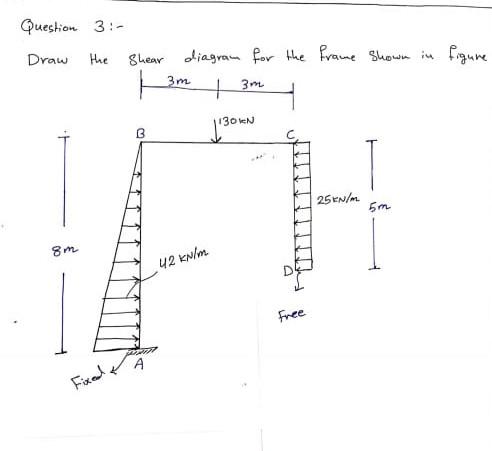 Question 3:-
Draw the Shear diagram for the frame shown in figure
3m 3m
130 KN
B C
25KN/m
5m
8m
42 KN/m
D
Free
Fixed A